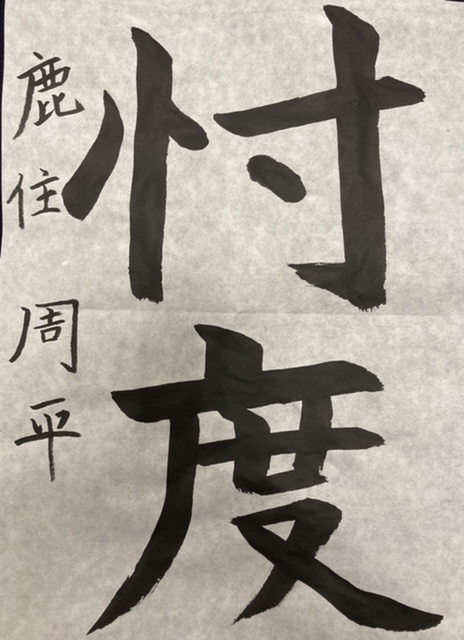 忖度
鹿住周平